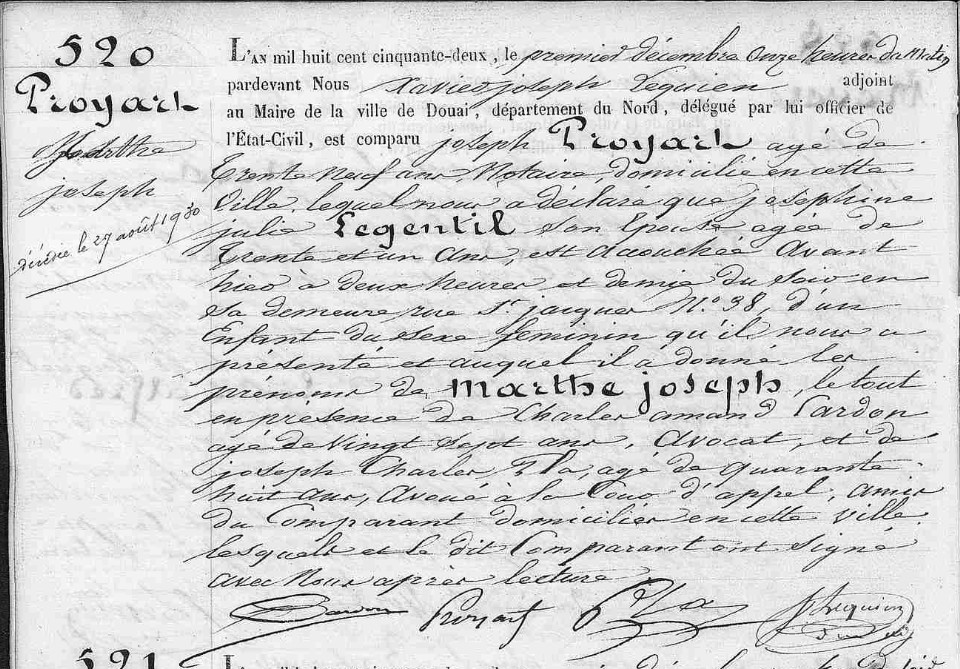 520
Proyart
Marthe
joseph
décédée le 27 août 1930
L'AN mil huit cent cinquante-deux, le premier décembre onze heures du matin
pardevant Nous Xavier joseph Lequien adjoint
au Maire de la ville de Douai, département du Nord, délégué par lui officier de
l'État-Civil, est comparu joseph Proyart agé de
trente neuf ans, Notaire, domicilié en cette
Ville, lequel nous a déclaré que joséphine
julie Legentil son Epouse agée de
trente et un ans, est accouchée avant
hier à deux heures et demie du soir en
sa demeure rue St jacques No 38, d'un
Enfant du sexe féminin qu'il nous a
présenté et auquel il a donné les
prénoms de Marthe joseph, le tout
en présence de Charles amand Cardon
agé de vingt sept ans, Avocat, et de
joseph Charles Pla, agé de quarante
huit ans, Avoué à la Cour d'appel, amis
du Comparant domiciliés en cette ville
lesquels et le dit Comparant ont signé
avec Nous après lecture
Cardon Proyart Pla Lequien
521
L'AN mil huit cent